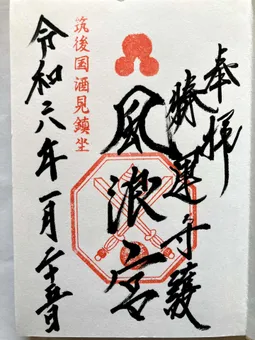 奉拝
勝運守護
風浪宮
筑後国酒見鎮坐
令和六年一月二十五日